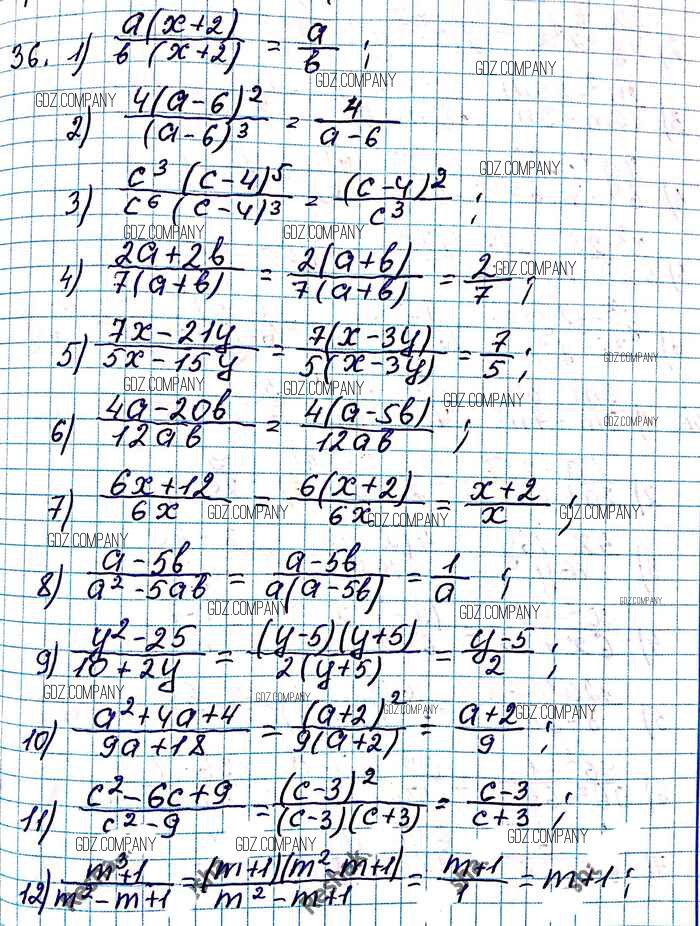 36. 1) a(x+2)/b(x+2) = a/b ;
GDZ.COMPANY GDZ.COMPANY
GDZ.COMPANY
2) 4(a-6)²/(a-6)³ = 4/a-6
GDZ.COMPANY
3) c³(c-4)⁵/c⁶(c-4)³ = (c-4)²/c³ ;
GDZ.COMPANY GDZ.COMPANY
4) 2a+2b/7(a+b) = 2(a+b)/7(a+b) = 2/7 ;
GDZ.COMPANY
5) 7x-21y/5x-15y = 7(x-3y)/5(x-3y) = 7/5 ;
GDZ.COMPANY
GDZ.COMPANY GDZ.COMPANY GDZ.COMPANY
6) 4a-20b/12ab = 4(a-5b)/12ab ;
GDZ.COMPANY
7) 6x+12/6x = 6(x+2)/6x = x+2/x ;
GDZ.COMPANY GDZ.COMPANY GDZ.COMPANY
GDZ.COMPANY
8) a-5b/a²-5ab = a-5b/a(a-5b) = 1/a ;
GDZ.COMPANY GDZ.COMPANY GDZ.COMPANY
9) y²-25/10+2y = (y-5)(y+5)/2(y+5) = y-5/2 ;
GDZ.COMPANY GDZ.COMPANY
10) a²+4a+4/9a+18 = (a+2)²/9(a+2) = a+2/9 ;
GDZ.COMPANY GDZ.COMPANY
11) c²-6c+9/c²-9 = (c-3)²/(c-3)(c+3) = c-3/c+3 ;
GDZ.COMPANY GDZ.COMPANY GDZ.COMPANY
12) m³+1/m²-m+1 = (m+1)(m²-m+1)/m²-m+1 = m+1/1 = m+1 ;